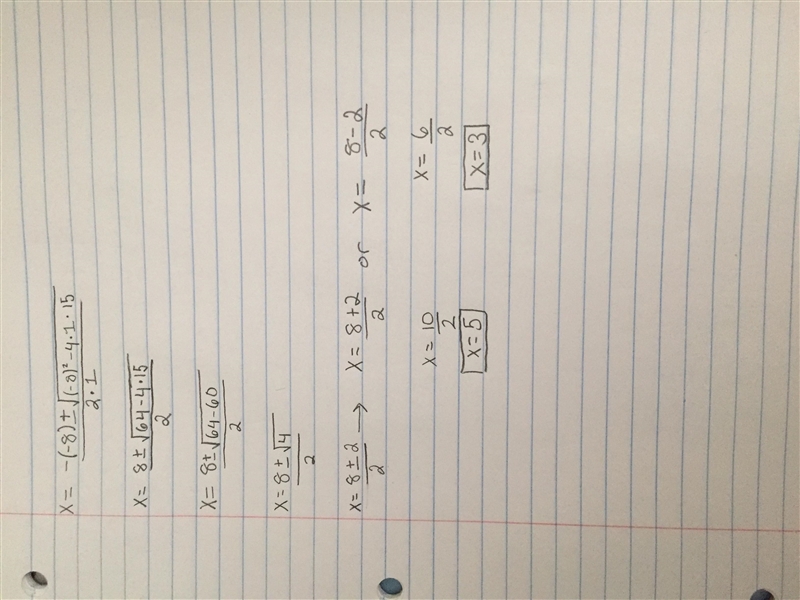 x = -(-8) ± √(-8)² - 4 · 1 · 15 / 2 · 1
x = 8 ± √64 - 4 · 15 / 2
x = 8 ± √64 - 60 / 2
x = 8 ± √4 / 2
x = 8 ± 2 / 2 → x = 8 + 2 / 2 or x = 8 - 2 / 2
x = 10 / 2 x = 6 / 2
x = 5 x = 3